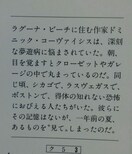 ラグーナ・ビーチに住む作家ドミ
ニック・コーヴァイシスは、深刻
な夢遊病に悩まされていた。朝、
目を覚ますとクローゼットやガレ
ージの中で丸まっているのだ。同
じ頃、シカゴで、ラスヴェガスで、
ボストンで、得体の知れない恐怖
におびえる人たちがいた。彼らに
その記憶はないが、一年前の夏、
あるものを〝見て〟しまったのだ。